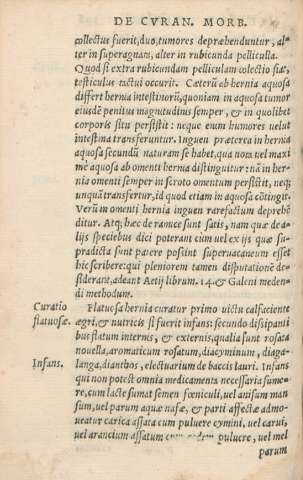 DE CVRAN. MORB.
collectus fuerit, duo, tumores depræhenduntur, al-
ter in superagnam, alter in rubicunda pellicula.
Quod si extra rubicundam pelliculam colectio fiat,
testiculus tactui occurit. Cæterũ ab hernia aquosa
differt hernia intestinorũ, quoniam in aquosa tumor
eiusdẽ penitus magnitudinis semper, & in quolibet
corporis situ persistit: neque enim humores uelut
intestina transferuntur. Inguen præterea in hernia
aquosa secundũ naturam se habet, qua nota uel maxi
mè aquosa ab omenti hernia distinguitur: nã in her-
nia omenti semper in scroto omentum persistit, neq;
unquã transfertur, id quod etiam in aquosa cõtingit.
Verũ in omenti hernia inguen rarefactum deprehẽ
ditur. Atq; hæc de ramice sunt satis, nam quæ de a-
lijs speciebus dici poterant cum uel ex ijs quæ su-
pradicta sunt patere possint superuacaneum esset
hic scribere: qui pleniorem tamen disputationẽ de-
siderant, adeant Aetij librum. 14. & Galeni meden-
di methodum.
Curatio
flatuosæ.
Flatuosa hernia curator primo uictu calfaciente
ægri, & nutricis si fuerit infans: secundo dissipanti
bus flatum internis, & externis, qualia sunt rosata
nouella, aromaticum rosatum, diacyminum, diaga-
langa, dianthos, electuarium de baccis lauri. Infans
Infans.
qui non potest omnia medicamenta necessaria sume-
re, cum lacte sumat semen fœniculi, uel anisum man
sum, uel parum aquæ nafæ, & parti affectæ admo-
ueatur carica assata cum puluere cymini, uel carui,
uel arancium assatum cum eodem puluere, uel mel
parum